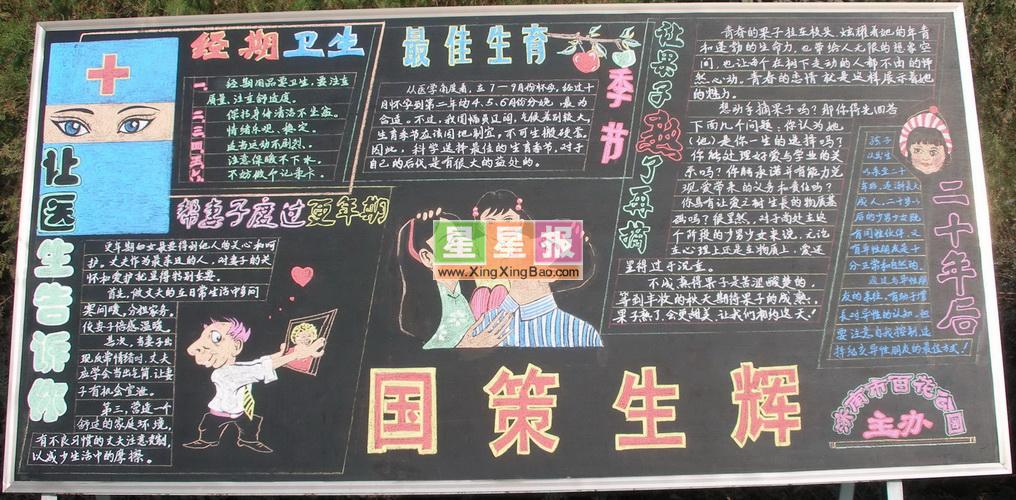 经期卫生
一、经期用品要卫生，要注意
质量，注意舒适度。
二、保持身体清洁不生食。
三、情绪乐观、稳定。
四、适当运动不剧烈。
五、注意保暖不下水。
六、不妨做个记录卡。
最佳生育
季节
从医学角度看，在7—9月份怀孕，经过十
月怀孕到第二年的4.5.6月份分娩，最为
合适。不过，我国幅员辽阔，气候差别较大，
生育季节应该因地制宜，不可生搬硬套。
因此，科学选择最佳的生育春节，对于
自己的后代是有很大的益处的。
让果子熟了再摘
青春的果子挂在枝头，炫耀着她的年青
和蓬勃的生命力，也带给人无限的想象空
间，也让每个在树下走动的人都不由的怦
然心动。青春的恋情就是这样展示着她
的魅力。
想动手摘果子吗？那你得先回答
下面几个问题：你认为她
（他）是你一生的选择吗？
你能处理好爱与学业的关
系吗？你能承诺并有能力兑
现爱带来的义务和责任吗？
你具有让爱之树生长的物质基
础吗？很显然，对于尚处在这
个阶段的少男少女来说，无论
在心理上还是生物质上，爱还
显得过于沉重。
不成熟得果子是苦涩酸梦的，
等到丰收的秋天期待果子的成熟，
果子熟了，会更甜美，让我们相约这天！
让医生告诉你
帮妻子度过更年期
更年期妇女最要得到他人的关心和呵
护。丈夫作为最亲近的人，对妻子的关
怀和爱护也显得特别重要。
首先，做丈夫的在日常生活中多问
寒问暖，分担家务，
使妻子倍感温暖。
其次，当妻子出
现反常情绪时，丈夫
应学会当出气筒，让妻
子有机会宣泄。
第三，营造一个
舒适的家庭环境，
有不良习惯的丈夫注意克制，
以减少生活中的摩擦。
星星报
www.XingXingBao.com
二十年后
孩子
成人，二十多少
后的少男少女既
有同性伙伴，又
有异性朋友是十
分正常和自然的。
友的亲任，有助于增
长对异性的认知，但
要注意自我控制这
择纪交异性朋友的最佳方式！
国策生辉
济南市百花公园
主办